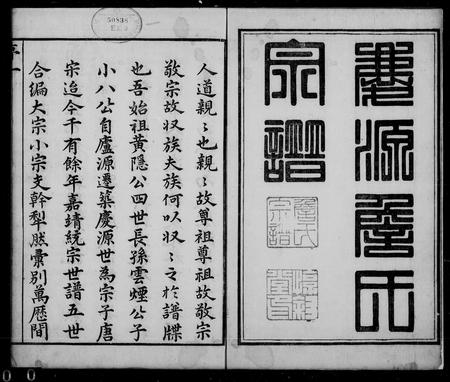 慶源詹氏
宗譜
詹氏
宗譜
50838
人道親〻也親〻故尊祖尊祖故敬宗
敬宗故収族夫族何以収〻之於譜牒
也吾始祖黃隱公四世長孫雲煙公子
小八公自廬源遷築慶源世為宗子唐
宋迨今千有餘年嘉靖統宗世譜五世
合編大宗小宗支幹犁然彙別萬曆間
序一
0 0